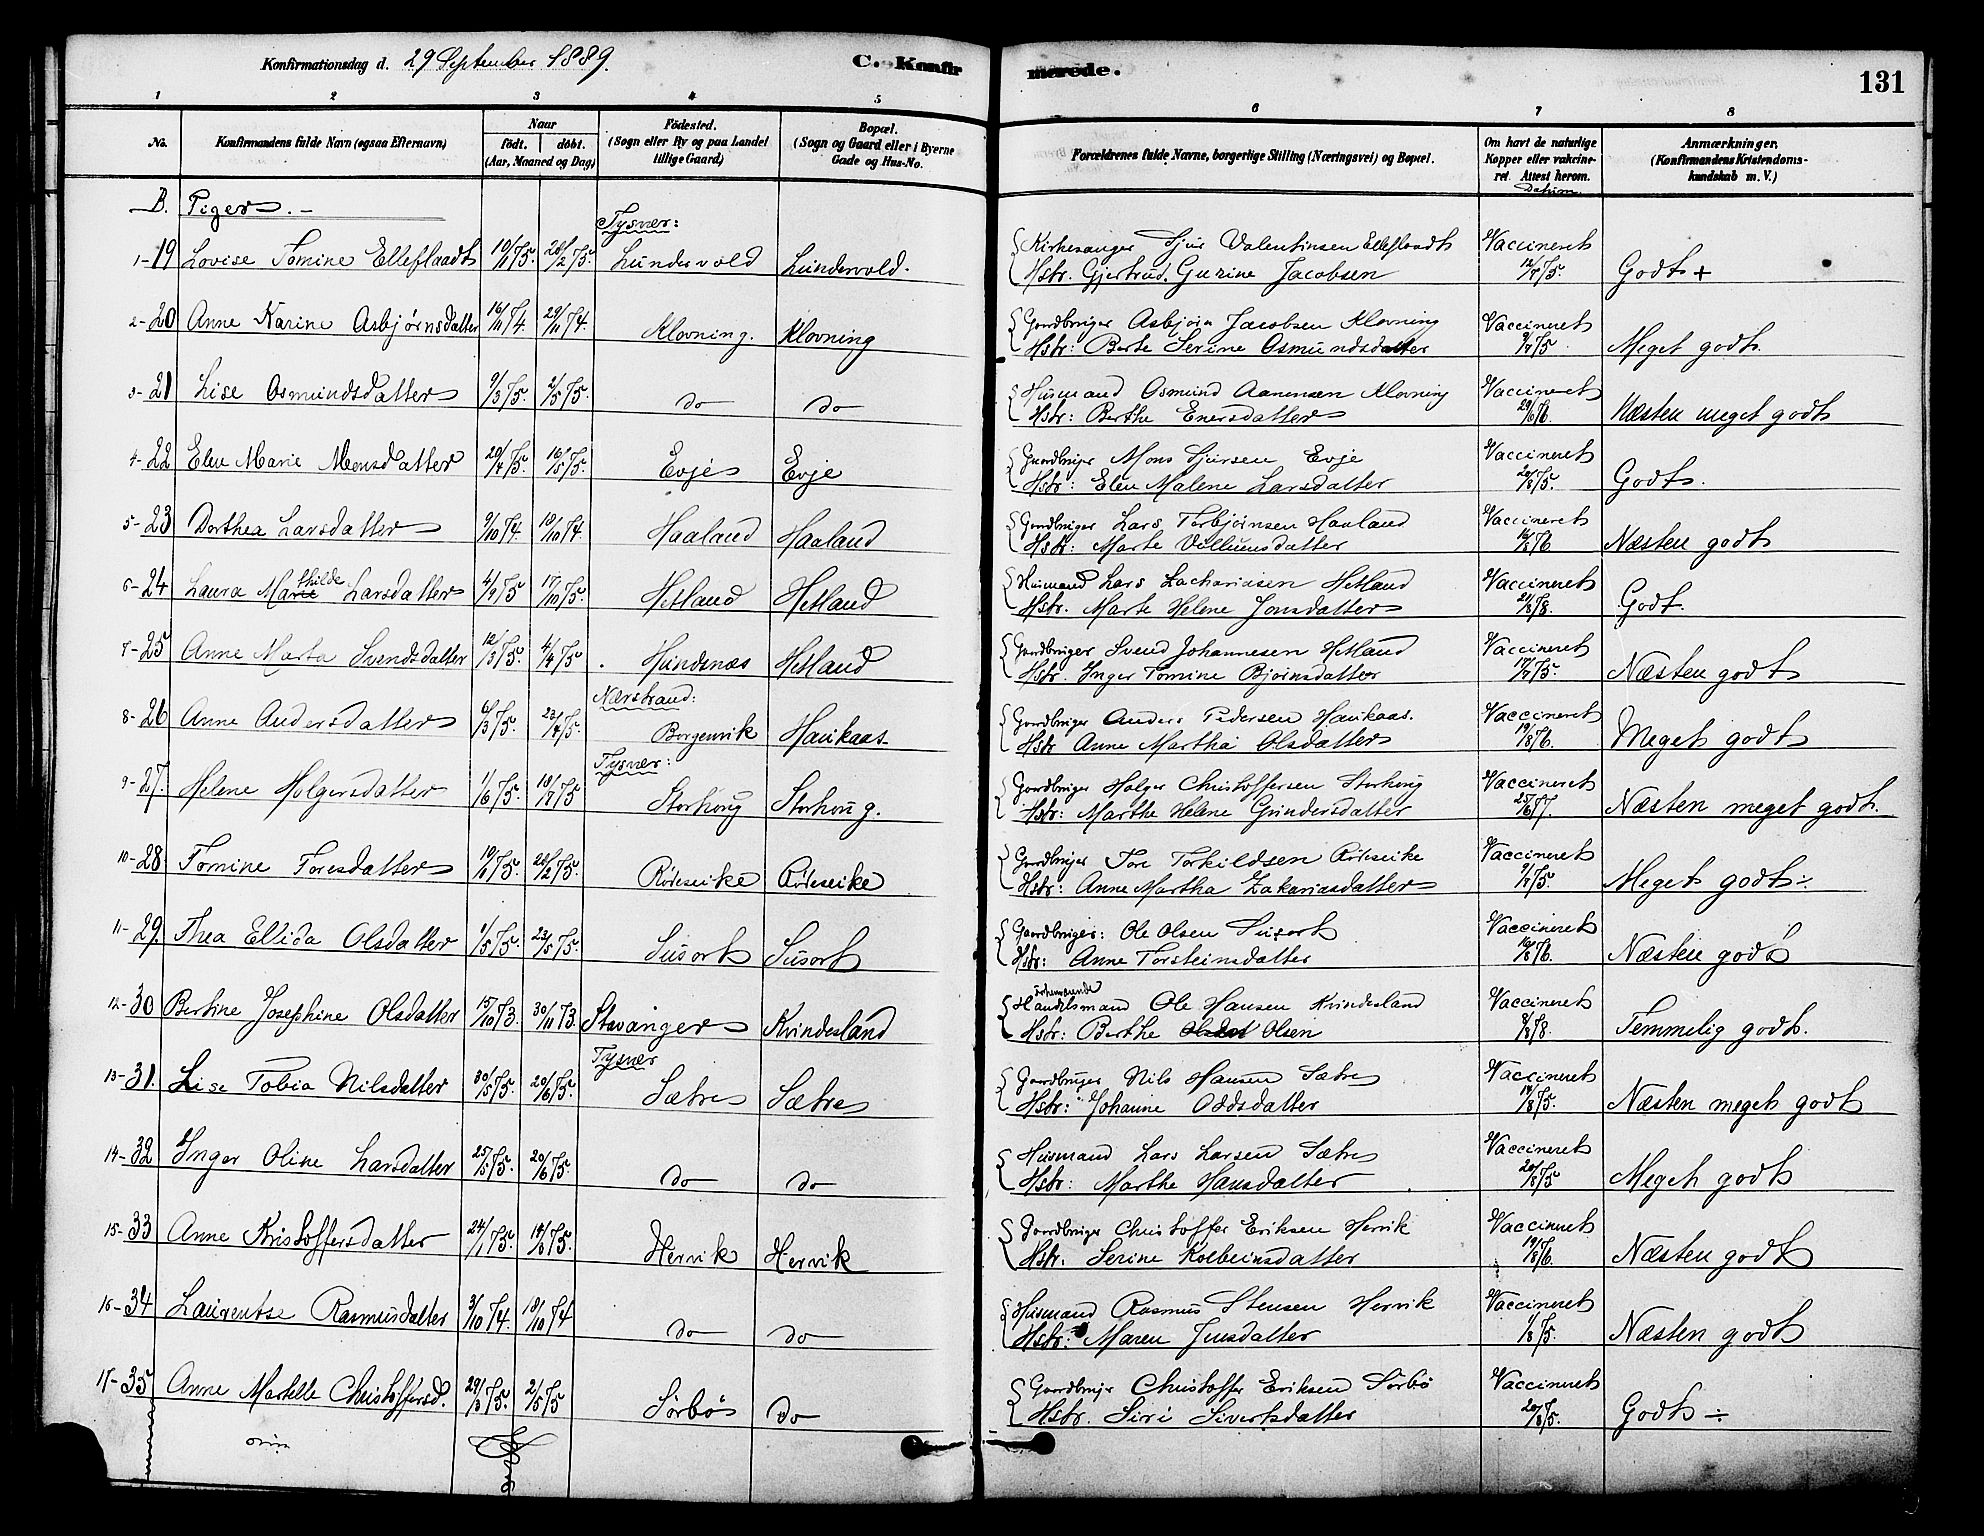 Konfirmationsdag d. 29 September 1889. C. Konfirmerede. 131
1 2 3 4 5 6 7 8
No. Konfirmandens fulde Navn (ogsaa Efternavn) Naar født. døbt. (Aar, Maaned og Dag) Fødested. (Sogn eller By og paa Landet tillige Gaard) Bopæl. (Sogn og Gaard eller i Byerne Gade og Hus-No. Forældrenes fulde Navne, borgerlige Stilling (Næringsvei) og Bopæl. Om havt de naturlige Kopper eller vakcineret. Attest herom. Datum. Anmærkninger. (Konfirmandens Kristendomskundskab m. V.)
B. Piger.
Tysvær:
1-19 Lovise Tomine Elleflaadt 10/1 75. 28/2 75. Lundervold Lundervold. Kirkesanger Sjur Valentinsen Elleflaadt Vaccineret
Hstr. Gjertrud Gurine Jacobsen 12/7 75. Godt +
2-20 Anne Karine Asbjørnsdatter 16/11 74. 29/11 74. Klovning. Klovning Gaardbruger Asbjørn Jacobsen Klovning Vaccineret
Hstr: Berte Serine Osmundsdatter 9/7 75. Meget godt.
3-21 Lise Osmundsdatter 9/3 75. 2/5 75. do do Husmand Osmund Aanensen Klovning Vaccineret
Hstr: Berthe Enersdatter 29/6 76. Næsten meget godt
4-22 Elen Marie Monsdatter 20/4 75. 16/5 75. Evje Evje Gaardbruger Mons Sjursen Evje Vaccineret
Hstr: Elen Malene Larsdatter 20/8 75. Godt.
5-23 Dorthea Larsdatter 9/10 74. 18/10 74. Haaland Haaland Gaardbruger Lars Torbjørnsen Haaland Vaccineret
Hstr: Marte Villumsdatter 16/8 76 Næsten godt
6-24 Laura Mathilde Larsdatter 4/9 75 17/10 75. Hetland Hetland Husmand Lars Zachariasen Hetland Vaccineret
Hstr. Marte Helene Jonsdatter 21/8 78. Godt.
7-25 Anne Marta Svendsdatter 12/3 75. 4/4 75. Hundsnæs Hetland Gaardbruger Svend Johannesen Hetland Vaccineret
Hstr. Inger Tomine Bjørnsdatter 17/7 75. Næsten godt
Nærstrand:
8-26 Anne Andersdatter 6/3 75. 23/4 75. Borgenvik Haukaas Gaardbruger Anders Pedersen Haukaas. Vaccineret
Hstr Anne Martha Olsdatter 19/8 76. Meget godt
Tysvær:
9-27. Helene Holgersdatter 1/6 75. 18/7 75 Storhoug Storhoug. Gaardbruger Holger Christoffersen Storhoug Vaccineret
Hstr: Marthe Helene Gundersdatter 25/6 77. Næsten meget godt.
10-28 Tomine Toresdatter 10/1 75. 28/2 75. Røiseike Gaardbruger Tore Torkildsen Vaccineret
Hstr: Anne Martha Zakariasdatter 9/7 75. Meget godt ÷
11-29. Thea Elida Olsdatter 1/5 75. 23/5 75. Susort Susort Gaardbruger: Ole Olsen Susort Vaccineret
Hstr: Anne Torsteinsdatter 18/8 76. Næsten godt
12-30 Bertine Josephine Olsdatter 15/10 73. 30/11 73. Stavanger Kvindesland Handelsmand Ole Hansen Kvindesland Vaccineret
Hstr: Berthe Olsen 8/8 78. Temmelig godt.
Tysvær
13-31. Lise Tobia Nilsdatter 30/5 75. 20/6 75. Sætre Sætre Gaardbruger Nils Hansen Sætre Vaccineret
Hstr: Johanne Oddsdatter 18/8 75. Næsten meget godt
14-32 Inger Oline Larsdatter 25/5 75. 20/6 75. do do Husmand Lars Larsen Sætre Vaccineret
Hstr: Marthe Hansdatter 20/8 75 Meget godt
15-33 Anne Kristoffersdatter 24/1 75. 14/3 75. Hervik Hervik Gaardbruger Christoffer Eriksen Hervik Vaccineret
Hstr. Serine Kolbeinsdatter 19/8 76. Næsten godt
16-34 Laugentse Rasmusdatter 3/10 74. 18/10 74 do do Husmand Rasmus Stensen Hervik Vaccineret
Hstr: Maren Jensdatter 1/8 75. Næsten godt
17-35 Anne Martelle Christoffersd. 29/3 75. 2/5 75 Sørbø do Gaardbruger Christoffer Eriksen Sørbø Vaccineret
Hstr. Siri Sivertsdatter 20/8 75. Godt ÷